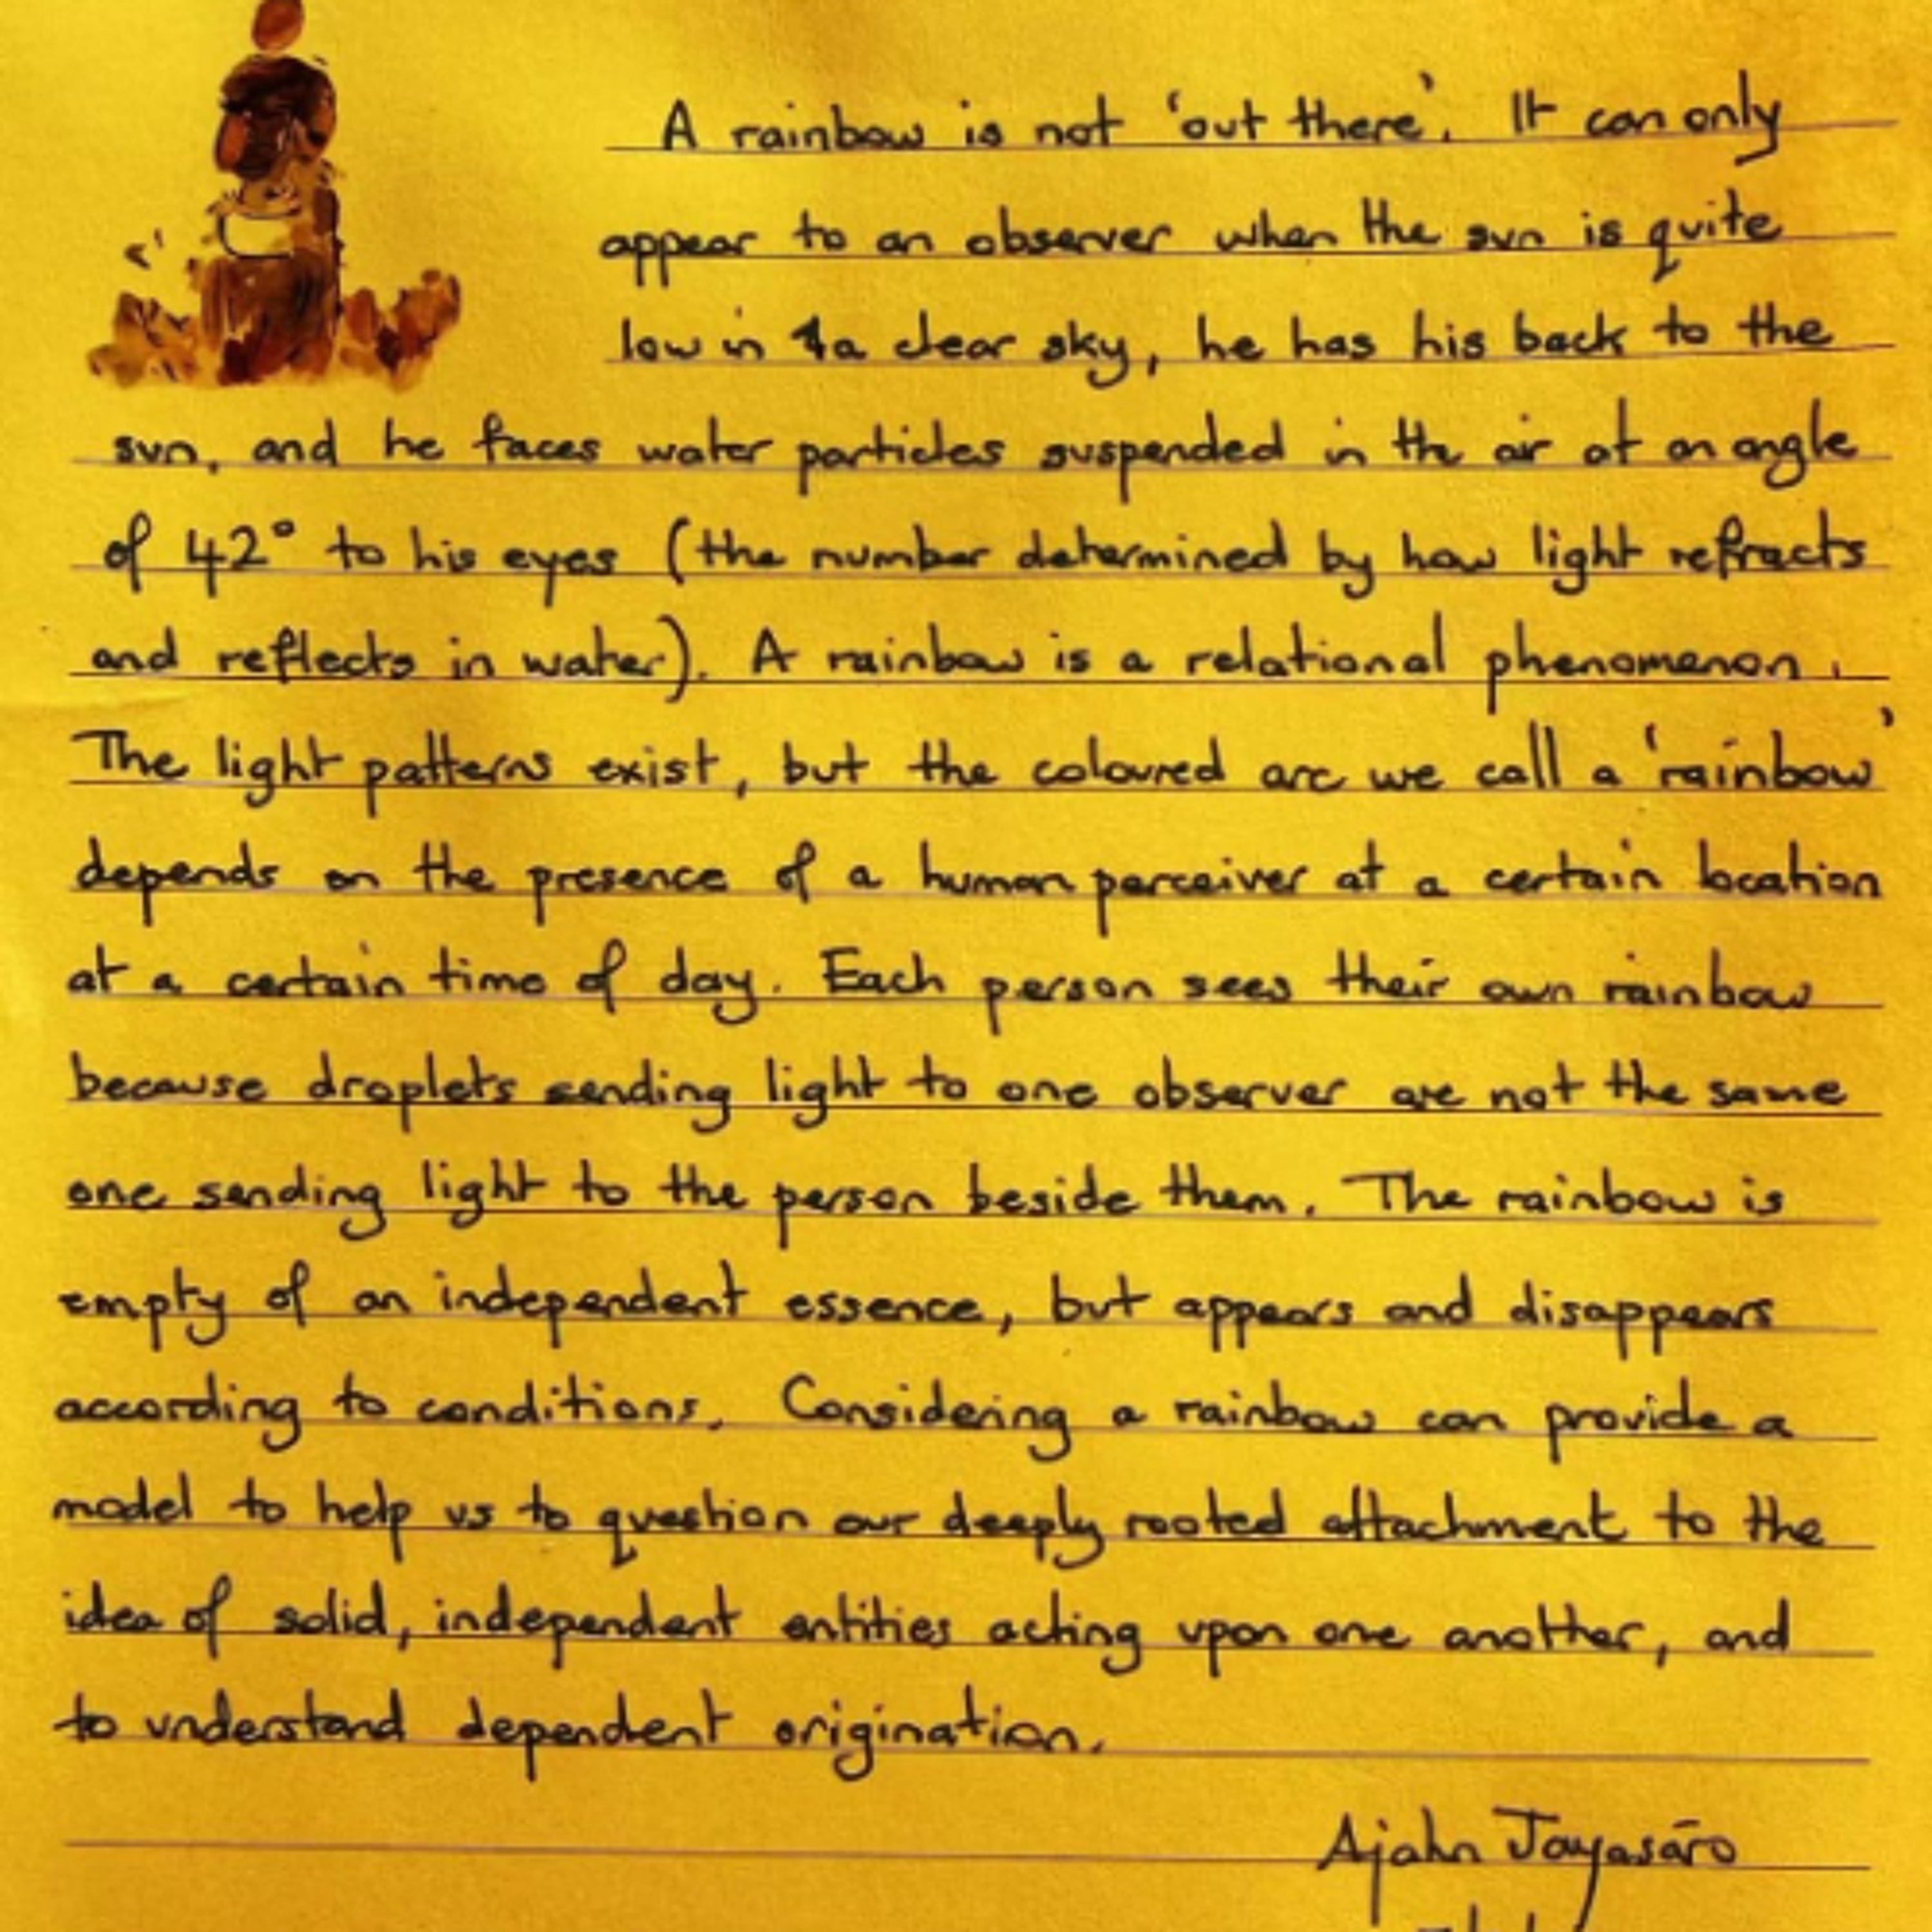 A rainbow is not 'out there'. It can only
appear to an observer when the sun is quite
low in a clear sky, he has his back to the
sun, and he faces water particles suspended in the air at an angle
of 42° to his eyes (the number determined by how light refracts
and reflects in water). A rainbow is a relational phenomenon.
The light patterns exist, but the coloured arc we call a 'rainbow'
depends on the presence of a human perceiver at a certain location
at a certain time of day. Each person sees their own rainbow
because droplets sending light to one observer are not the same
one sending light to the person beside them. The rainbow is
empty of an independent essence, but appears and disappears
according to conditions. Considering a rainbow can provide a
model to help us to question our deeply rooted attachment to the
idea of solid, independent entities acting upon one another, and
to understand dependent origination.
Ajahn Jayasāro